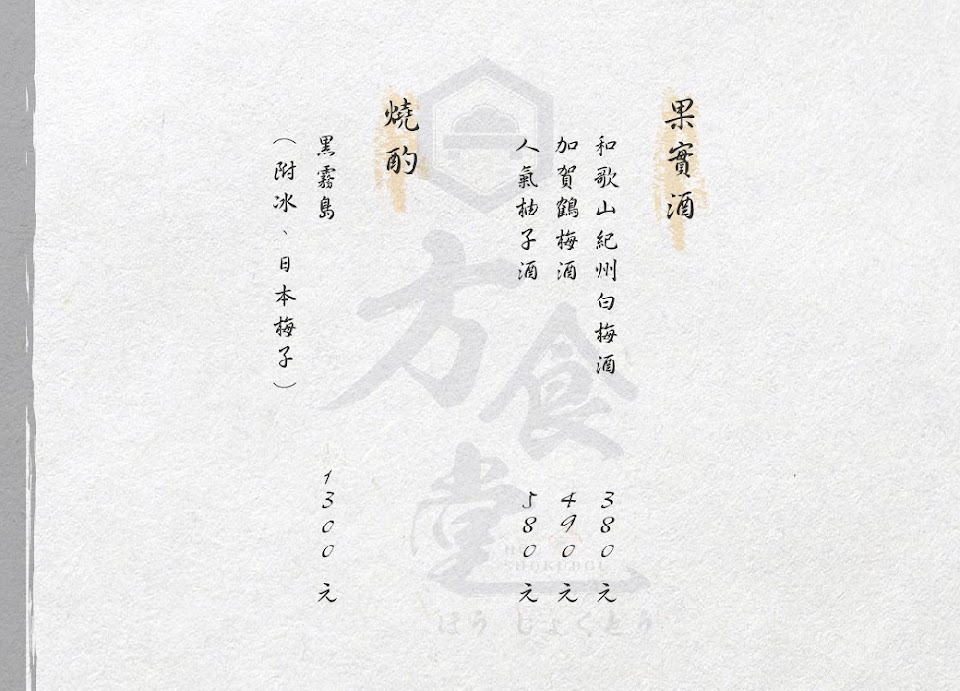 果實酒
和歌山紀州白梅酒 380元
加賀鶴梅酒 490元
人氣柚子酒 580元
燒酌
黑霧島 1300元
（附冰、日本梅子）
方食堂
SHOKUDOU
ほう しょくどう